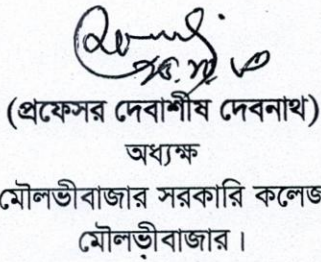 (প্রফেসর দেবাশীষ দেবনাথ)
অধ্যক্ষ
মৌলভীবাজার সরকারি কলেজ
মৌলভীবাজার।